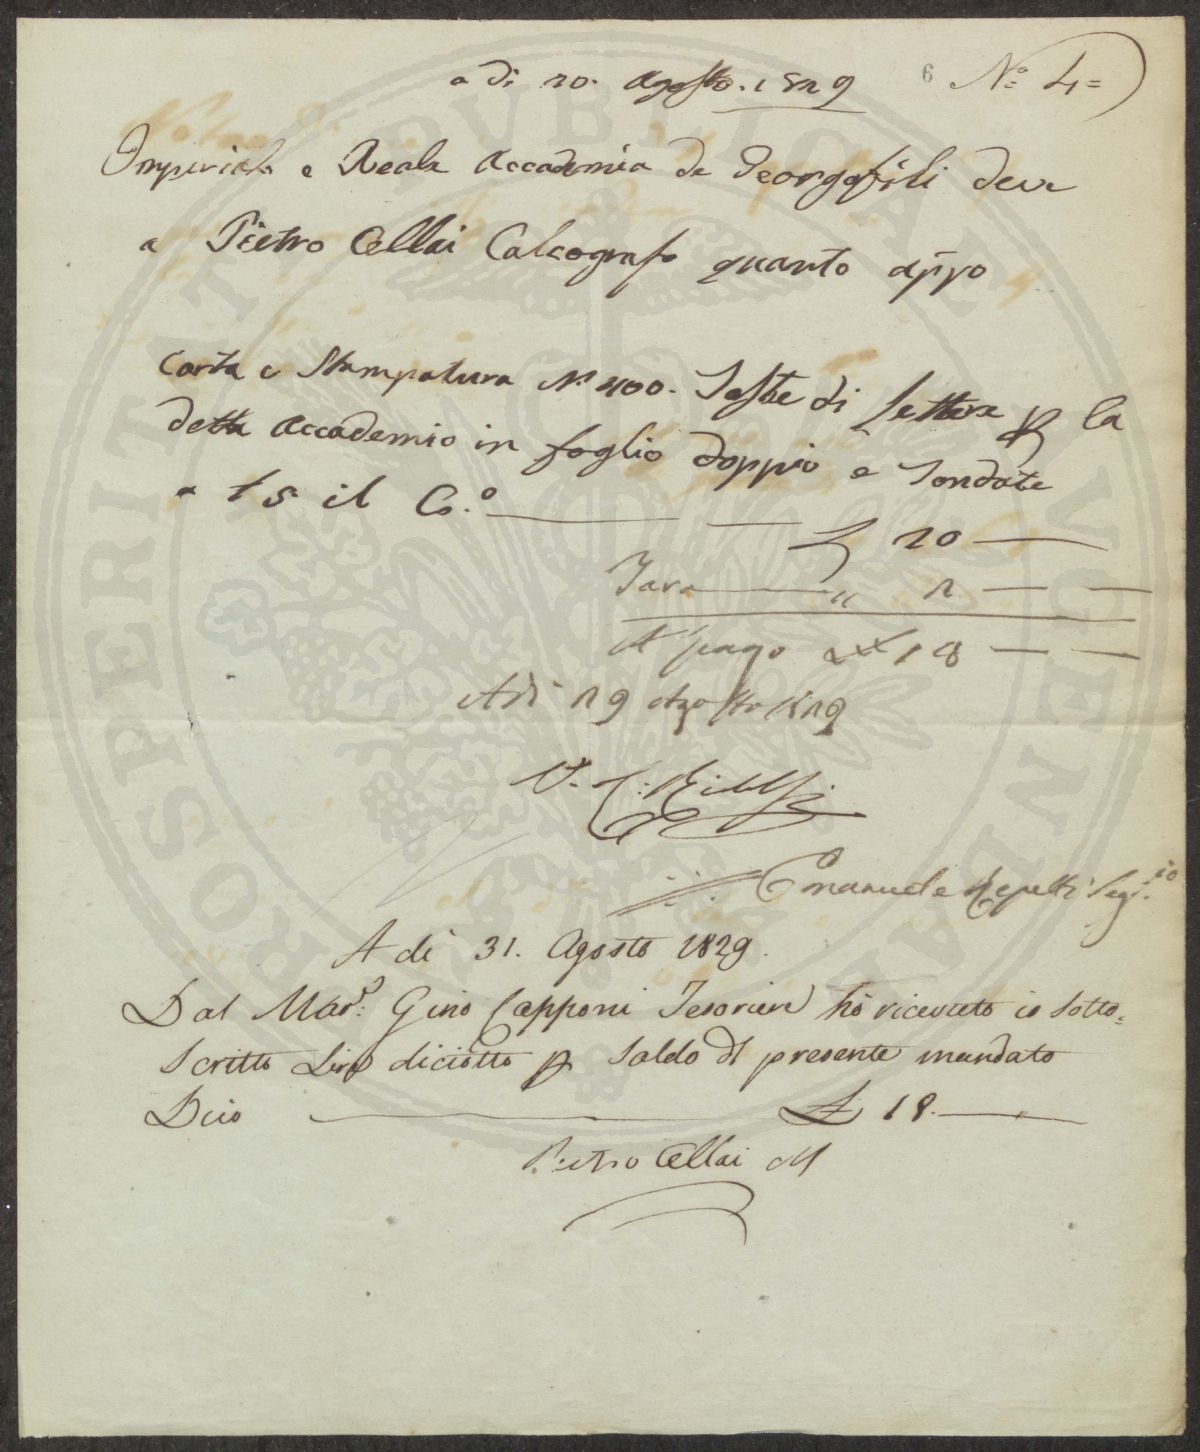 a di 20. Agosto. 1829 6 N.º 4=
Imperiale e Reale Accademia de Georgofili deve
a Pietro Cellai Calcografo quanto appo
Carta e Stampatura N.º 400. Teste di Lettere p la
detta Accademia in foglio doppio e Tondate
a £ 5 il C.º £ 20
Tara " 2
A pago £ 18
A di 29 Agosto 1829
V. C. Ridolfi
Emanuele Repetti Seg.rio
A di 31. Agosto 1829.
Dal Mar.e Gino Capponi Tesoriere ho ricevuto io sotto=
scritto Lire diciotto p saldo dl presente mandato
Dico £ 18.
Pietro Cellai M
PROSPERITATI PUBLICAE AUGENDAE